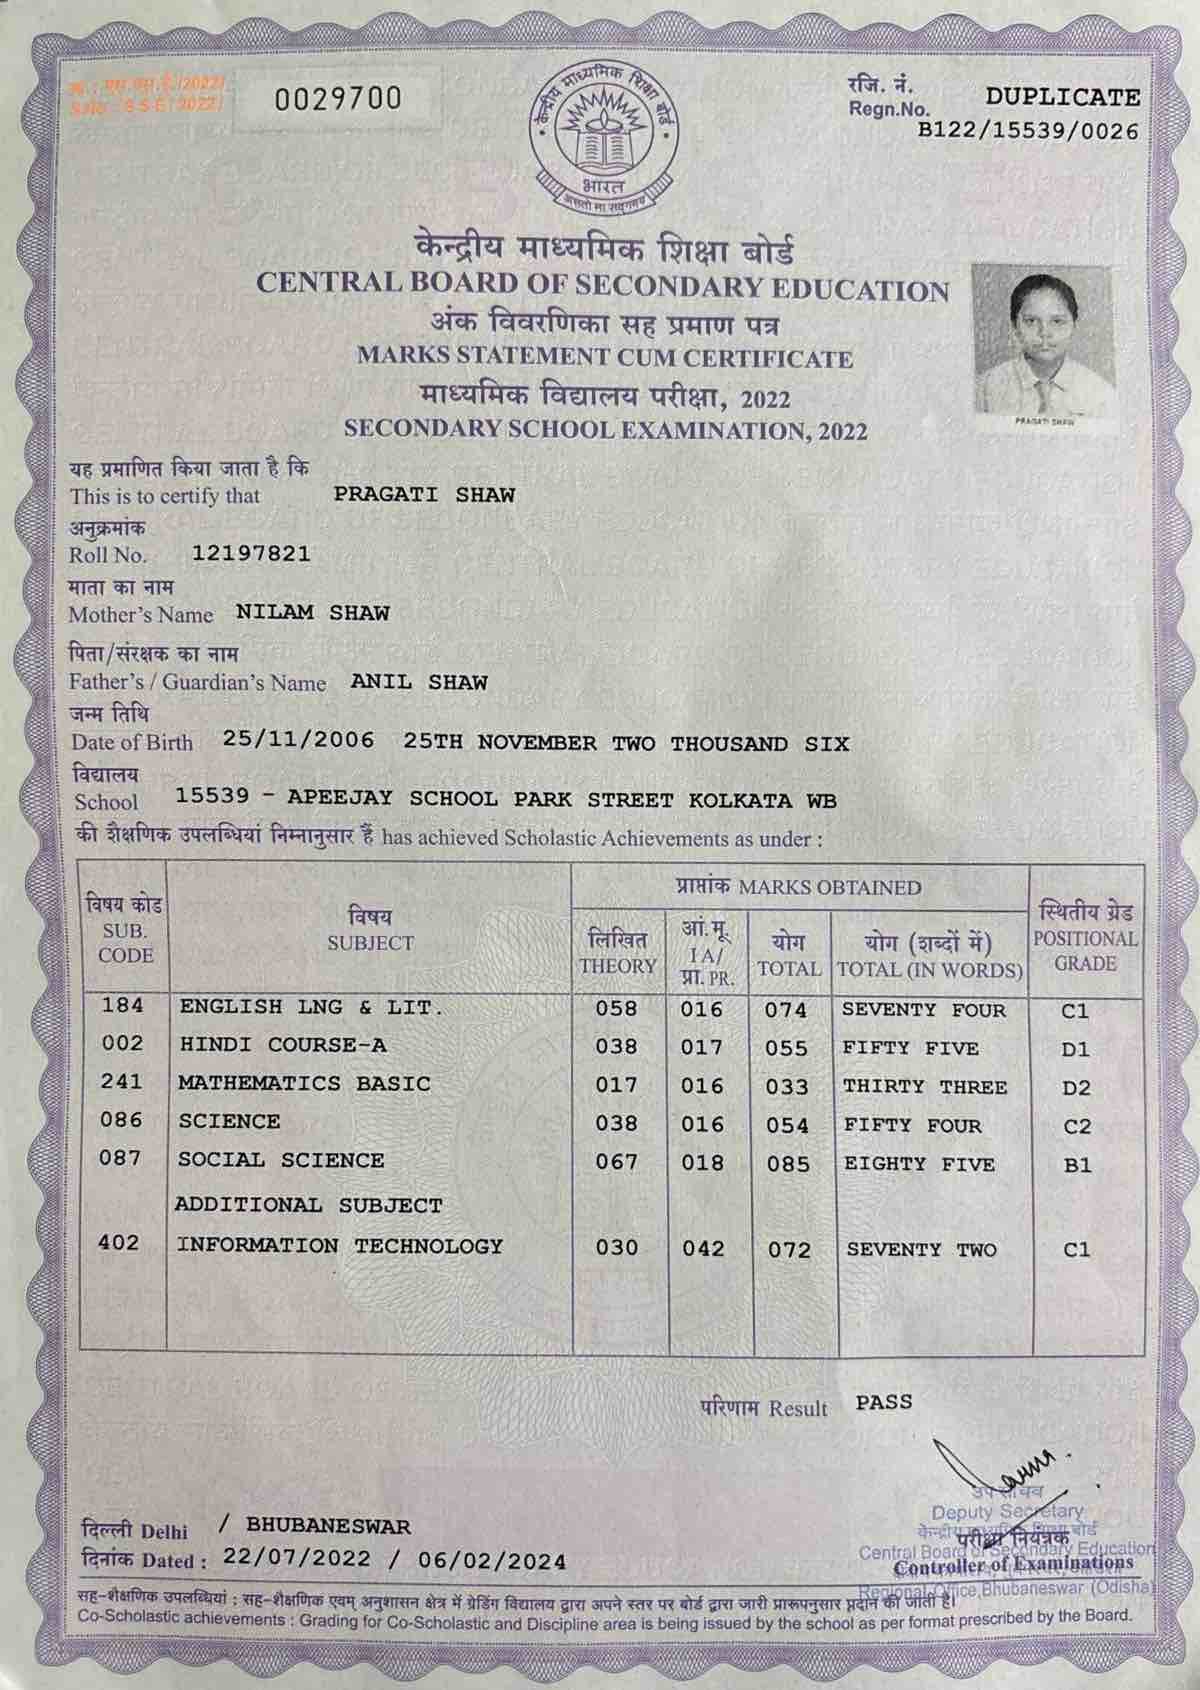 क्र. : एस.एस.ई.(2022)
S.No : S S E (2022)
0029700
रजि. नं.
Regn.No.
DUPLICATE
B122/15539/0026
केन्द्रीय माध्यमिक शिक्षा बोर्ड
भारत
असतो मा सद्गमय
केन्द्रीय माध्यमिक शिक्षा बोर्ड
CENTRAL BOARD OF SECONDARY EDUCATION
अंक विवरणिका सह प्रमाण पत्र
MARKS STATEMENT CUM CERTIFICATE
माध्यमिक विद्यालय परीक्षा, 2022
SECONDARY SCHOOL EXAMINATION, 2022
PRAGATI SHAW
यह प्रमाणित किया जाता है कि
This is to certify that PRAGATI SHAW
अनुक्रमांक
Roll No. 12197821
माता का नाम
Mother's Name NILAM SHAW
पिता/संरक्षक का नाम
Father's / Guardian's Name ANIL SHAW
जन्म तिथि
Date of Birth 25/11/2006 25TH NOVEMBER TWO THOUSAND SIX
विद्यालय
School 15539 - APEEJAY SCHOOL PARK STREET KOLKATA WB
की शैक्षणिक उपलब्धियां निम्नानुसार हैं has achieved Scholastic Achievements as under :
विषय कोड
SUB.
CODE
विषय
SUBJECT
प्राप्तांक MARKS OBTAINED
लिखित
THEORY
आं.मू.
I A/
प्रा. PR.
योग
TOTAL
योग (शब्दों में)
TOTAL (IN WORDS)
स्थितीय ग्रेड
POSITIONAL
GRADE
184 ENGLISH LNG & LIT. 058 016 074 SEVENTY FOUR C1
002 HINDI COURSE-A 038 017 055 FIFTY FIVE D1
241 MATHEMATICS BASIC 017 016 033 THIRTY THREE D2
086 SCIENCE 038 016 054 FIFTY FOUR C2
087 SOCIAL SCIENCE 067 018 085 EIGHTY FIVE B1
ADDITIONAL SUBJECT
402 INFORMATION TECHNOLOGY 030 042 072 SEVENTY TWO C1
परिणाम Result PASS
उप सचिव
Deputy Secretary
केन्द्रीय माध्यमिक शिक्षा बोर्ड
परीक्षा नियंत्रक
Central Board of Secondary Education
Controller of Examinations
Regional Office, Bhubaneswar (Odisha)
दिल्ली Delhi / BHUBANESWAR
दिनांक Dated : 22/07/2022 / 06/02/2024
सह-शैक्षणिक उपलब्धियां : सह-शैक्षणिक एवम् अनुशासन क्षेत्र में ग्रेडिंग विद्यालय द्वारा अपने स्तर पर बोर्ड द्वारा जारी प्रारूपनुसार प्रदान की जाती है।
Co-Scholastic achievements : Grading for Co-Scholastic and Discipline area is being issued by the school as per format prescribed by the Board.